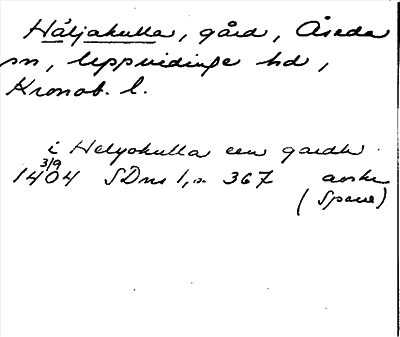 Häljakulla, gård, Åseda
sn, Uppvidinge hd,
Kronob. l.
i Helyokulla een gardh
3/9
1404 SDns 1, s. 367 avskr
(Spane)